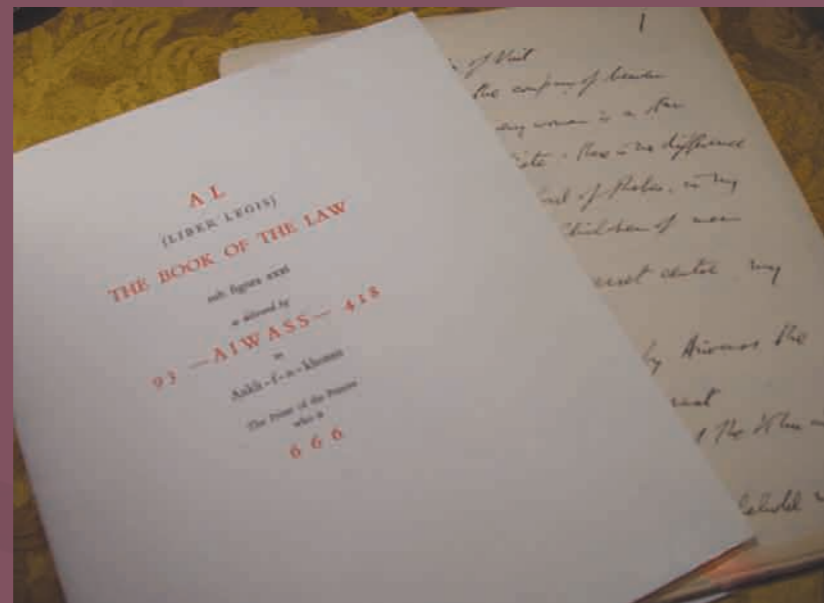 A L
(LIBER LEGIS)
THE BOOK OF THE LAW
sub figura xxxi
as delivered by
93 —AIWASS— 418
to
Ankh-f-n-khonsu
The Priest of the Princes
who is
6 6 6
1
of Nuit
the company of heaven
woman is a star
there is no difference
of Thebes, in my
Children of men
secret centre my
by Aiwass the
the
behold